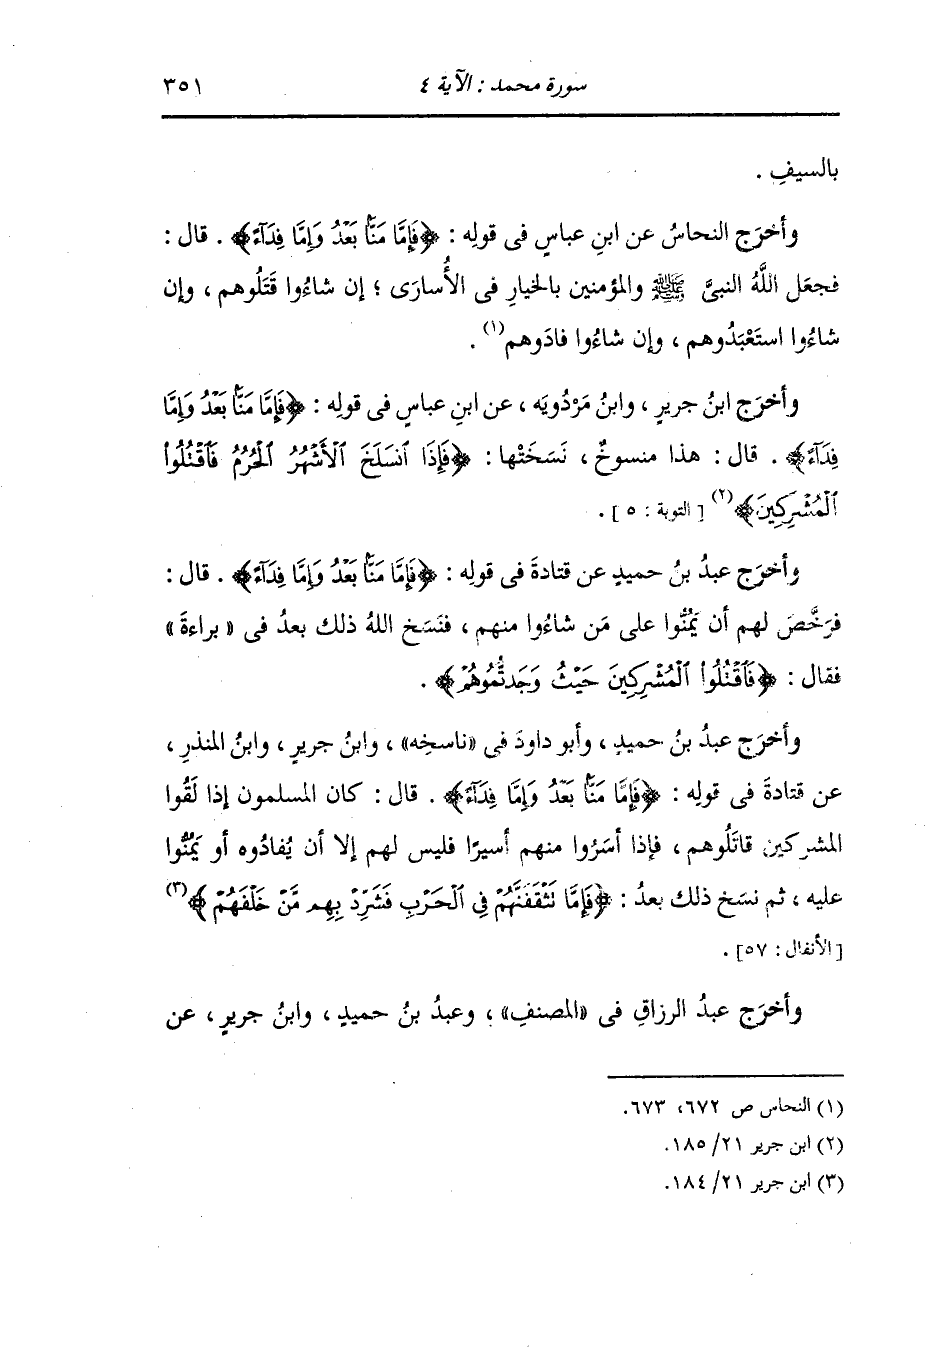 سورة محمد : الآية ٤ ٣٥١
بالسيفِ .
وأخرَج النحاسُ عن ابنِ عباسٍ فى قولِه : ﴿فَإِمَّا مَنًّا بَعْدُ وَإِمَّا فِدَآءً﴾ . قال :
فجعَل اللَّهُ النبىَّ ﷺ والمؤمنين بالخيارِ فى الأُسارَى ؛ إن شاءُوا قَتَلُوهم ، وإن
شاءُوا استَعْبَدُوهم ، وإن شاءُوا فادَوهم(١) .
وأخرَج ابنُ جريرٍ ، وابنُ مَرْدُويَه ، عن ابنِ عباسٍ فى قولِه : ﴿فَإِمَّا مَنًّا بَعْدُ وَإِمَّا
فِدَآءً﴾ . قال : هذا منسوخٌ ، نَسَخَتْها : ﴿فَإِذَا ٱنسَلَخَ ٱلْأَشْهُرُ ٱلْحُرُمُ فَٱقْتُلُوا۟
ٱلْمُشْرِكِينَ﴾(٢) [ التوبة : ٥ ] .
وأخرَج عبدُ بنُ حميدٍ عن قتادةَ فى قولِه : ﴿فَإِمَّا مَنًّا بَعْدُ وَإِمَّا فِدَآءً﴾ . قال :
فرَخَّصَ لهم أن يَمُنُّوا على مَن شاءُوا منهم ، فنَسَخ اللهُ ذلك بعدُ فى « براءةَ »
فقال : ﴿فَٱقْتُلُوا۟ ٱلْمُشْرِكِينَ حَيْثُ وَجَدتُّمُوهُمْ﴾ .
وأخرَج عبدُ بنُ حميدٍ ، وأبو داودَ فى «ناسخِه» ، وابنُ جريرٍ ، وابنُ المنذرِ ،
عن قتادةَ فى قولِه : ﴿فَإِمَّا مَنًّا بَعْدُ وَإِمَّا فِدَآءً﴾ . قال : كان المسلمون إذا لَقُوا
المشركين قاتَلُوهم ، فإذا أسَرُوا منهم أسيرًا فليس لهم إلا أن يُفادُوه أو يَمُنُّوا
عليه ، ثم نسَخ ذلك بعدُ : ﴿فَإِمَّا تَثْقَفَنَّهُمْ فِى ٱلْحَرْبِ فَشَرِّدْ بِهِم مَّنْ خَلْفَهُمْ﴾(٣)
[الأنفال : ٥٧] .
وأخرَج عبدُ الرزاقِ فى «المصنفِ» ، وعبدُ بنُ حميدٍ ، وابنُ جريرٍ ، عن
(١) النحاس ص ٦٧٢، ٦٧٣.
(٢) ابن جرير ٢١/ ١٨٥.
(٣) ابن جرير ٢١/ ١٨٤.